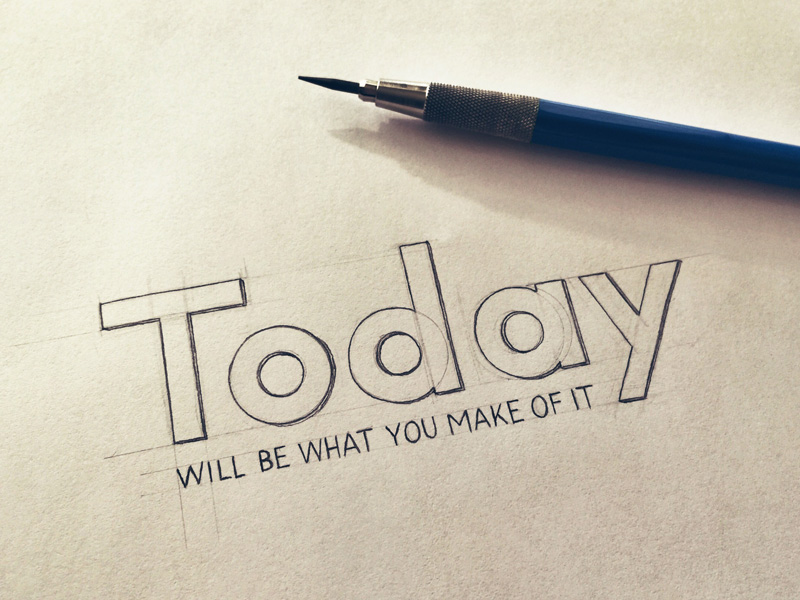 Today
WILL BE WHAT YOU MAKE OF IT